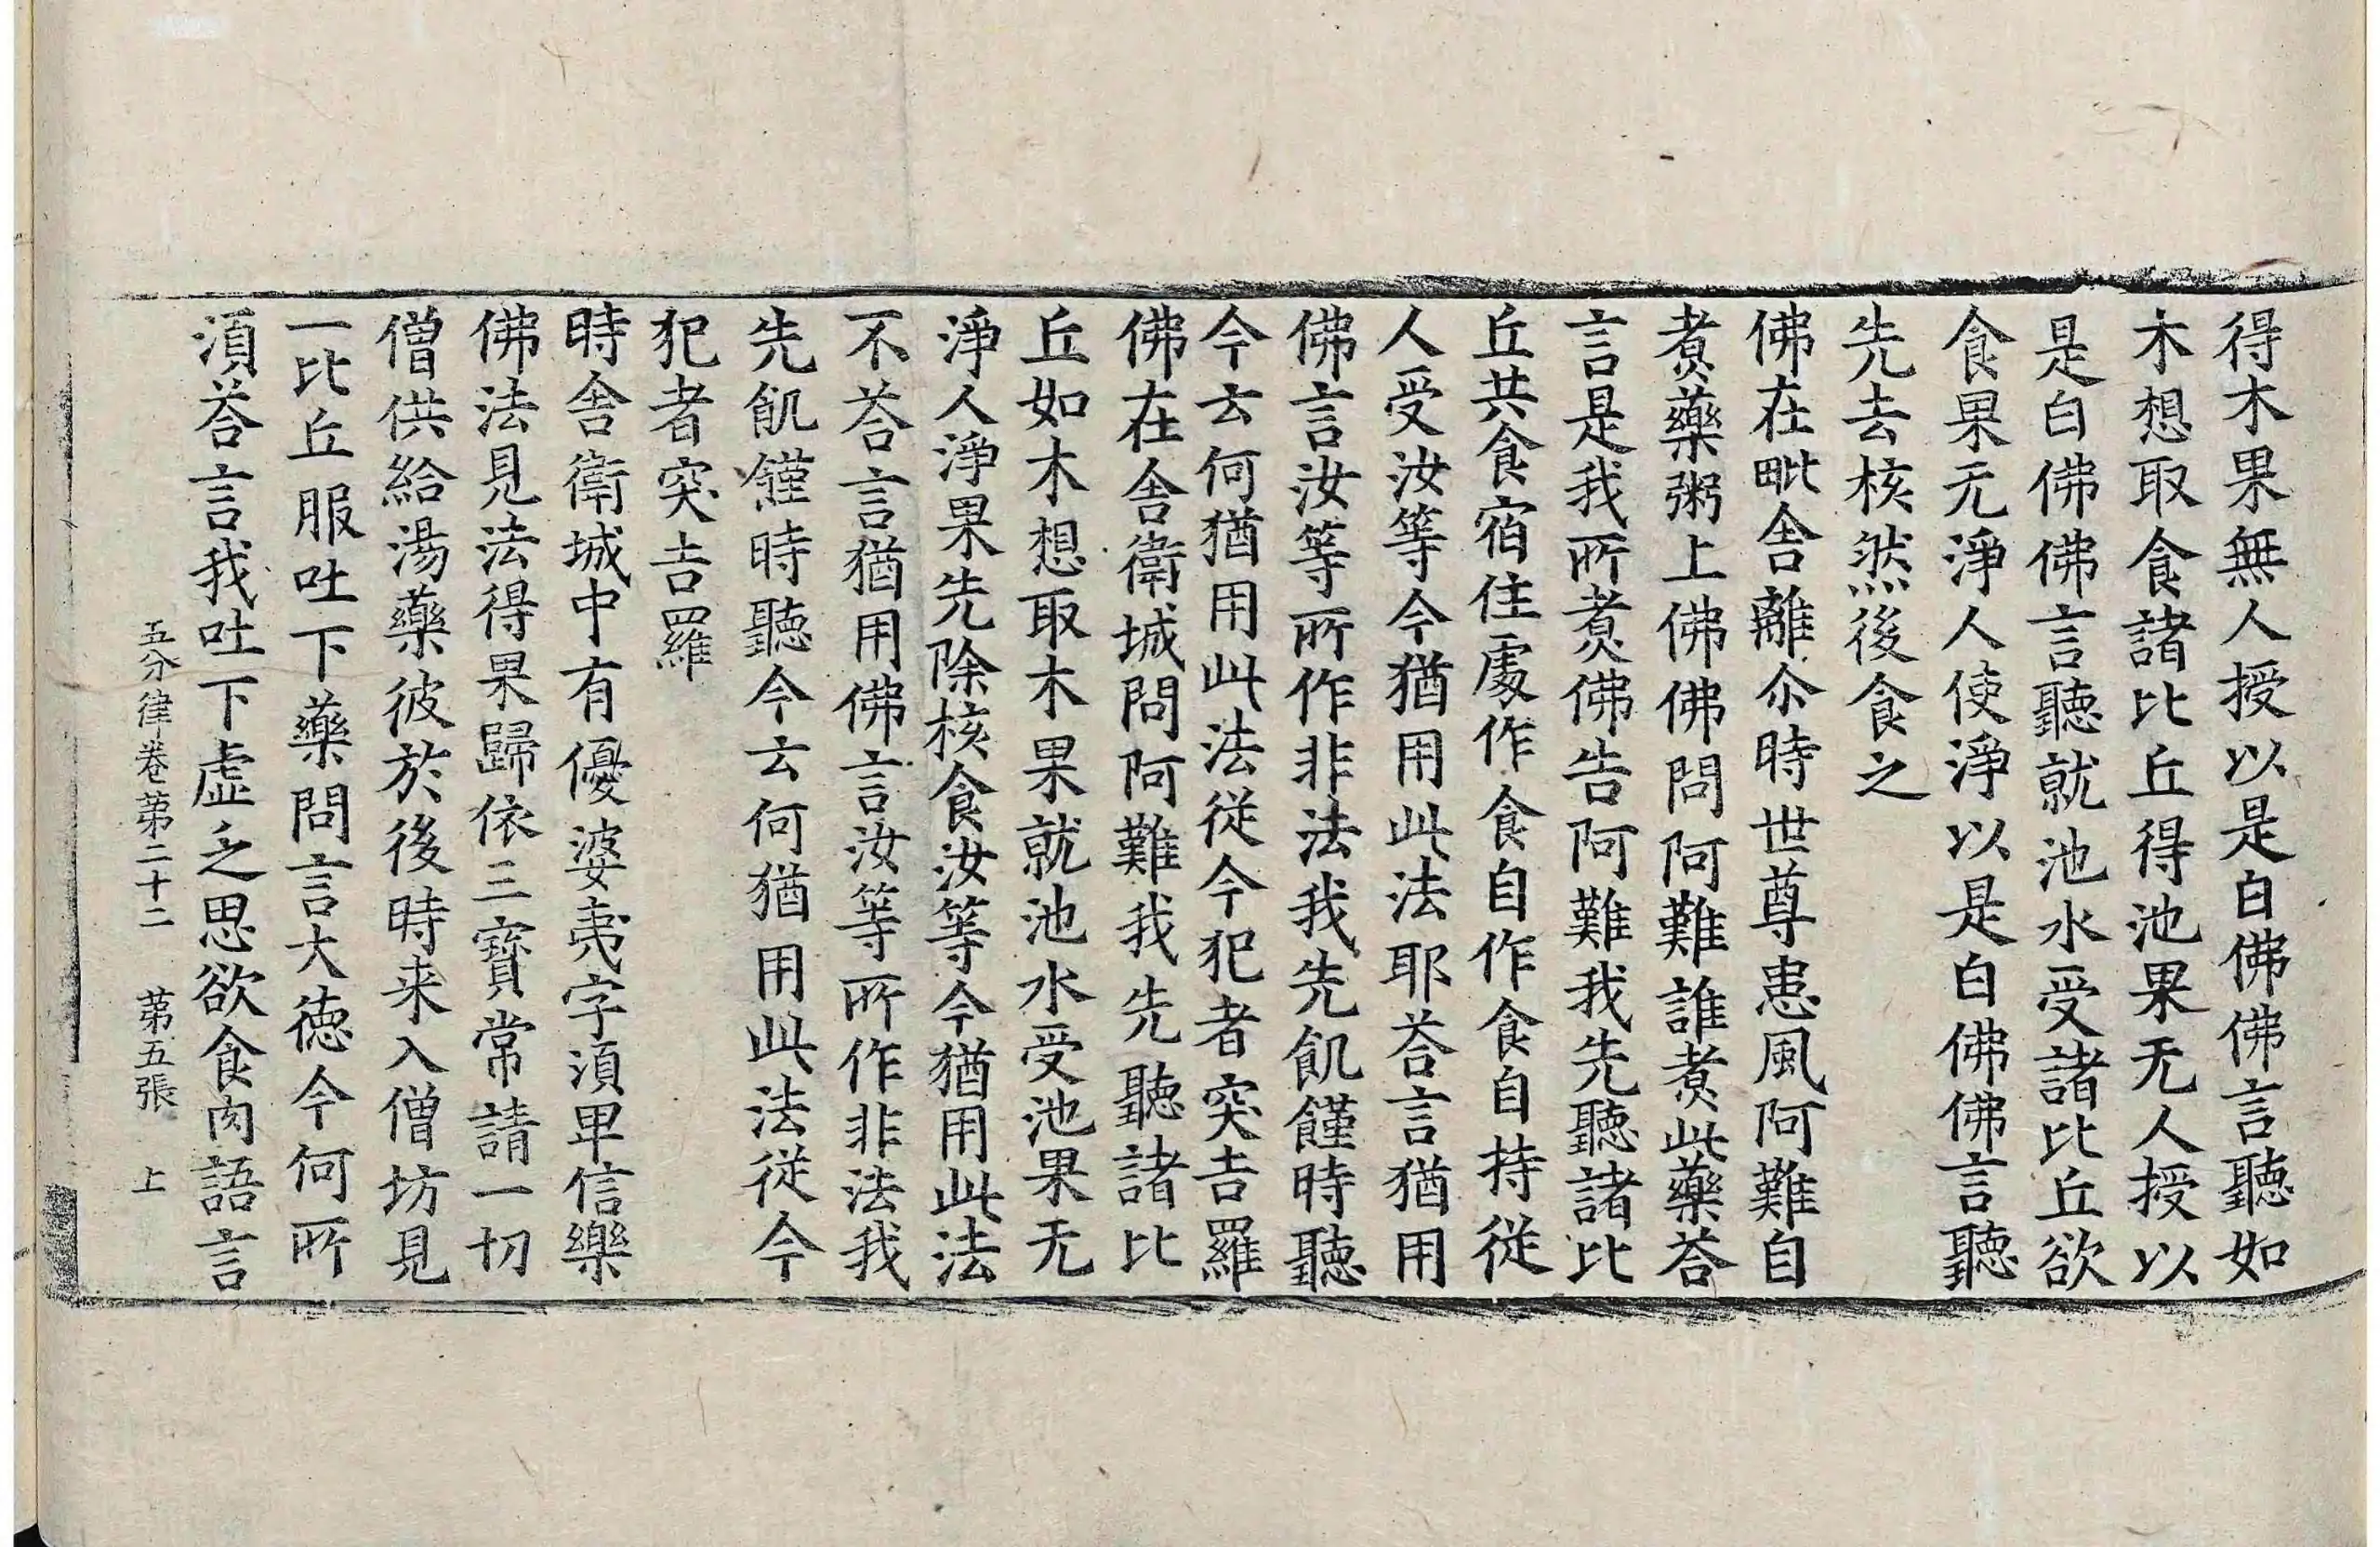 得木果無人授以是白佛佛言聽如
木想取食諸比丘得池果无人授以
是白佛佛言聽就池水受諸比丘欲
食果无淨人使淨以是白佛佛言聽
先去核然後食之
佛在毗舍離尒時世尊患風阿難自
煑藥粥上佛佛問阿難誰煑此藥荅
言是我所煑佛告阿難我先聽諸比
丘共食宿住處作食自作食自持從
人受汝等今猶用此法耶荅言猶用
佛言汝等所作非法我先飢饉時聽
今云何猶用此法從今犯者突吉羅
佛在舍衛城問阿難我先聽諸比
丘如木想取木果就池水受池果无
淨人淨果先除核食汝等今猶用此法
不荅言猶用佛言汝等所作非法我
先飢饉時聽今云何猶用此法從今
犯者突吉羅
時舍衛城中有優婆夷字湏卑信樂
佛法見法得果歸依三寶常請一切
僧供給湯藥彼於後時来入僧坊見
一比丘服吐下藥問言大德今何所
湏荅言我吐下虛乏思欲食肉語言
五分律卷第二十二　第五張　上